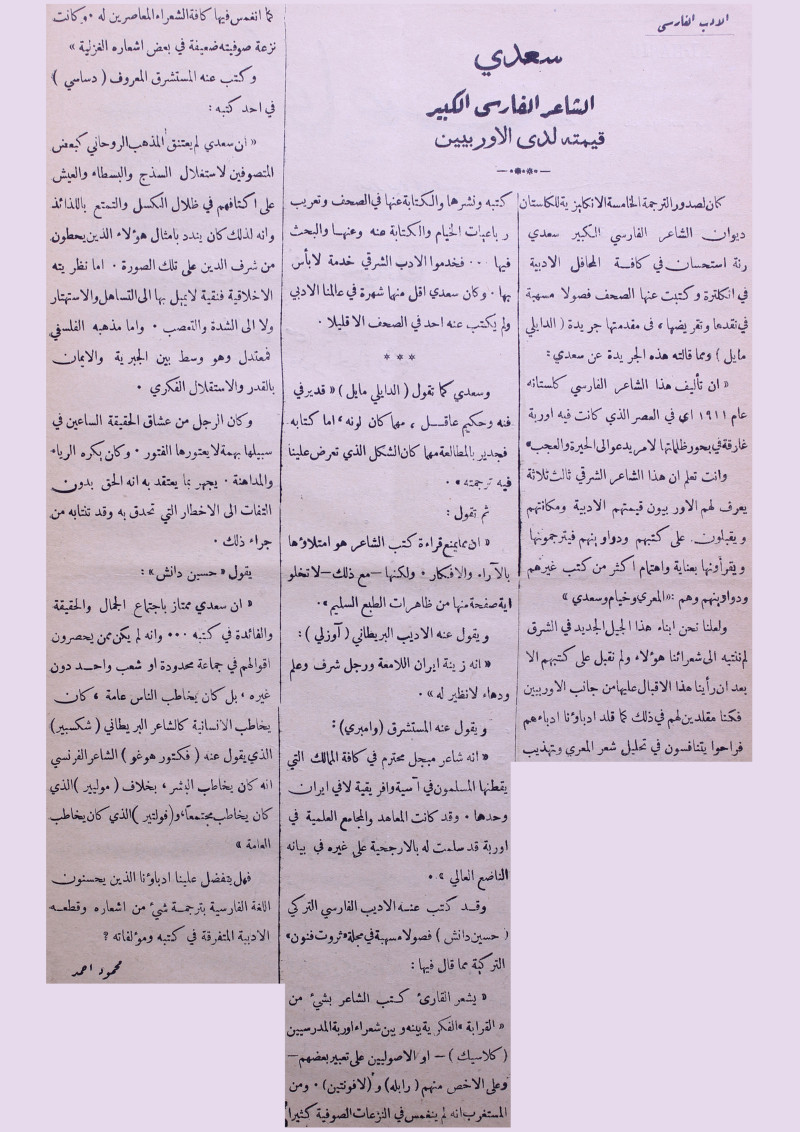 الادب الفارسى
سعدي
الشاعر الفارسى الكبير
قيمته لدى الاوربيين
كان لصدور الترجمة الخامسة الانكليزية للكلستان
ديوان الشاعر الفارسي الكبير سعدي
رنة استحسان في كافة المحافل الادبية
في انكلترة وكتبت عنها الصحف فصولا مسهبة
في نقدها وتقريضها، فى مقدمتها جريدة ( الدايلي
مايل ) ومما قالته هذه الجريدة عن سعدي :
« ان تأليف هذا الشاعر الفارسي كلستانه
عام ١٩١١ اي في العصر الذي كانت فيه اوربة
غارقة في بحور ظلماتها لامر يدعو الى الحيرة والعجب»
وانت تعلم ان هذا الشاعر الشرقي ثالث ثلاثة
يعرف لهم الاوربيون قيمتهم الادبية ومكانتهم
ويقبلون على كتبهم ودواوينهم فيترجمونها
ويقرأونها بعناية واهتمام أكثر من كتب غيرهم
ودواوينهم وهم : «المعري وخيام وسعدي »
ولعلنا نحن ابناء هذا الجيل الجديد في الشرق
لم ننتبه الى شعرائنا هؤلاء ولم نقبل على كتبهم الا
بعد ان رأينا هذا الاقبال عليها من جانب الاوربيين
فكنا مقلدين لهم في ذلك كما قلد ادباؤنا ادباءهم
فراحوا يتنافسون في تحليل شعر المعري وتهذيب
كتبه ونشرها والكتابة عنها في الصحف وتعريب
رباعيات الخيام والكتابة عنه وعنها والبحث
فيها ٠٠ فخدموا الادب الشرقي خدمة لابأس
بها ٠ وكان سعدي اقل منهما شهرة في عالمنا الادبي
ولم يكتب عنه احد في الصحف الا قليلا ٠
* * *
وسعدي كما تقول ( الدايلي مايل ) « قدير في
فنه وحكيم عاقل ، مهما كان لونه ، اما كتابه
فجدير بالمطالعة مهما كان الشكل الذي تعرض علينا
فيه ترجمته » ٠
ثم تقول :
« ان مما يمنع قراءة كتب الشاعر هو امتلاؤها
بالآراء والافكار ٠ ولكنها —مع ذلك— لا تخلو
اية صفحة منها من ظاهرات الطبع السليم» ٠
ويقول عنه الاديب البريطاني ( آوزلي ) :
« انه زينة ايران اللامعة ورجل شرف وعلم
ودهاء لا نظير له » ٠
ويقول عنه المستشرق ( وامبري) :
« انه شاعر مبجل محترم في كافة الممالك التي
يقطنها المسلمون في آسية وافريقية لا في ايران
وحدها ٠ وقد كانت المعاهد والمجامع العلمية في
اوربة قد سلمت له بالارجحية على غيره في بيانه
الناضع العالي » ٠
وقد كتب عنه الاديب الفارسي التركي
( حسين دانش ) فصولا مسهبة في مجلة «ثروت فنون»
التركية مما قال فيها :
« يشعر القارئ كتب الشاعر بشئ من
« القرابة » الفكرية بينه وبين شعراء اوربة المدرسيين
(كلاسيك ) — او الاصوليين على تعبير بعضهم —
وعلى الاخص منهم ( رابله) و (لافونتين) ٠ ومن
المستغرب انه لم ينغمس في النزعات الصوفية كثيرا
كما انغمس فيها كافة الشعراء المعاصرين له ٠ وكانت
نزعة صوفيته ضعيفة في بعض اشعاره الغزلية »
وكتب عنه المستشرق المعروف ( دساسي )
في احد كتبه :
« ان سعدي لم يعتنق المذهب الروحاني كبعض
المتصوفين لاستغلال السذج والبسطاء والعيش
على اكتافهم في ظلال الكسل والتمتع باللذائذ
وانه لذلك كان يندد بامثال هؤلاء الذين يحطون
من شرف الدين على تلك الصورة ٠ اما نظريته
الاخلاقية فنقية لا يميل بها الى التساهل والاستهتار
ولا الى الشدة والتعصب ٠ واما مذهبه الفلسفي
فمعتدل وهو وسط بين الجبرية والايمان
بالقدر والاستقلال الفكري ٠
وكان الرجل من عشاق الحقيقة الساعين في
سبيلها بهمة لا يعتورها الفتور ٠ وكان يكره الرياء
والمداهنة ٠ يجهر بما يعتقد به انه الحق بدون
التفات الى الاخطار التي تحدق به وقد تنتابه من
جراء ذلك ٠
يقول « حسين دانش» :
« ان سعدي ممتاز باجتماع الجمال والحقيقة
والفائدة في كتبه ٠٠٠ وانه لم يكن ممن يحصرون
اقوالهم في جماعة محدودة او شعب واحد دون
غيره ، بل كان يخاطب الناس عامة ، كان
يخاطب الانسانية كالشاعر البريطاني ( شكسبير)
الذي يقول عنه ( فكتور هوغو ) الشاعر الفرنسي
انه كان يخاطب البشر ، بخلاف ( موليير )الذي
كان يخاطب مجتمعا، و( فولتير )الذي كان يخاطب
العامة »
فهل يتفضل علينا ادباؤنا الذين يحسنون
اللغة الفارسية بترجمة شيء من اشعاره وقطعه
الادبية المتفرقة في كتبه ومؤلفاته ؟
محمود احمد